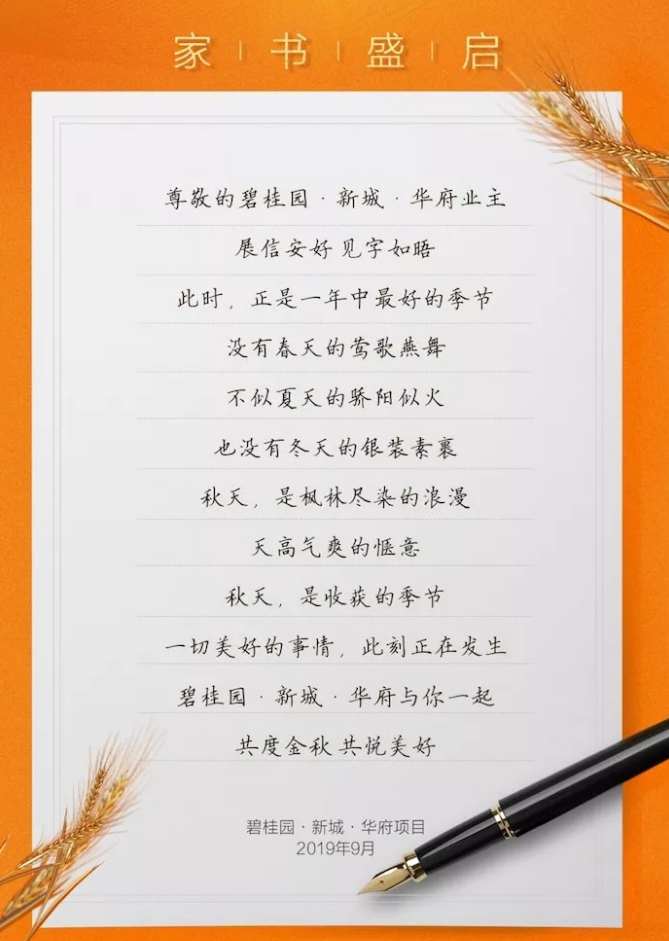 家 | 书 | 盛 | 启
尊敬的碧桂园·新城·华府业主
展信安好 见字如晤
此时，正是一年中最好的季节
没有春天的莺歌燕舞
不似夏天的骄阳似火
也没有冬天的银装素裹
秋天，是枫林尽染的浪漫
天高气爽的惬意
秋天，是收获的季节
一切美好的事情，此刻正在发生
碧桂园·新城·华府与你一起
共度金秋 共悦美好
碧桂园·新城·华府项目
2019年9月